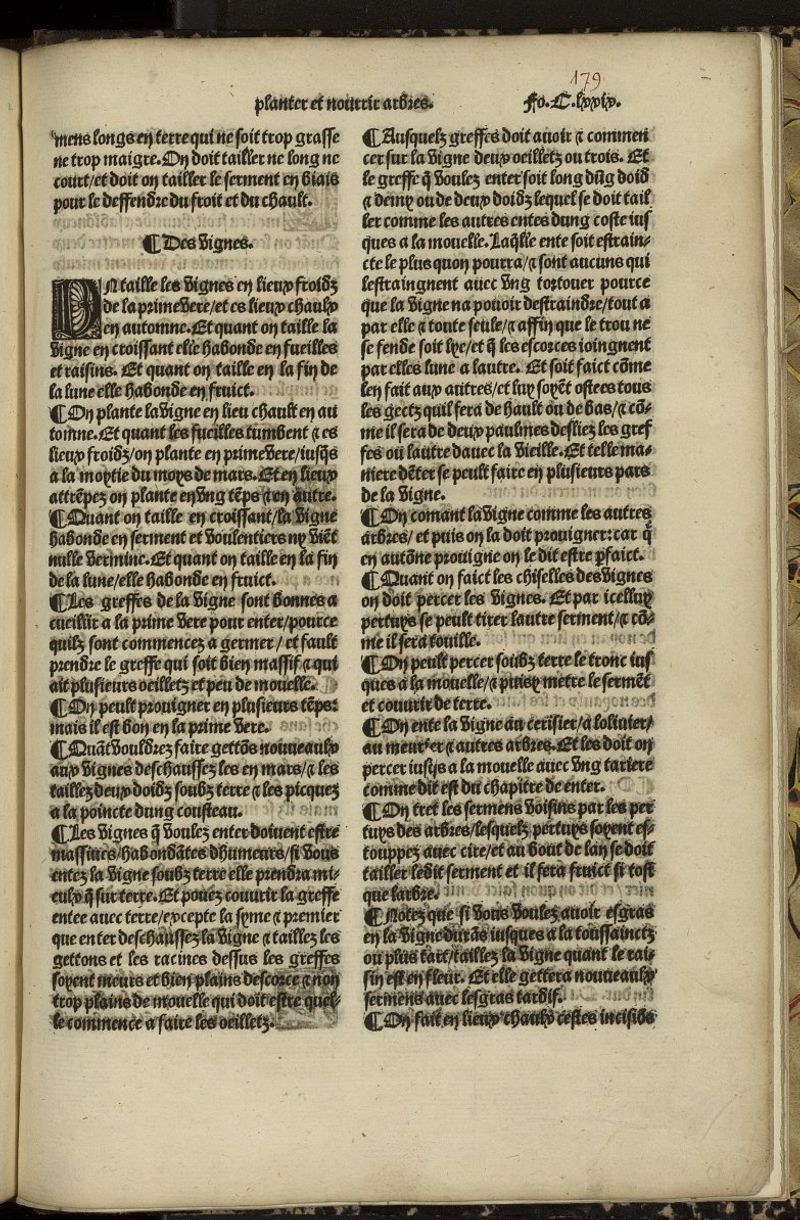 179
planter et nourrir arbres. Fo. C. lxxix.
mens longs en terre qui ne soit trop grasse
ne trop maigre. On doit tailler ne long ne
court/et doit on tailler le serment en biais
pour le deffendre du froit et du chault.
¶ Des vignes.
ON taille les vignes en lieux froidz
de la primevere/et es lieux chaulx
en automne. Et quant on taille la
vigne en croissant elle habonde en fueilles
et raisins. Et quant on taille en la fin de
la lune elle habonde en fruict.
¶ On plante la vigne en lieu chault en au
tomne. Et quant les fueilles tumbent ⁊ es
lieux froidz/on plante en primevere/iusq̃s
a la moytie du moys de mars. Et en lieux
attrẽpez on plante en vng tẽps ⁊ en autre.
¶ Quant on taille en croissant/la vigne
habonde en serment et voulentiers ny viẽt
nulle vermine. Et quant on taille en la fin
de la lune/elle habonde en fruict.
¶ Les greffes de la vigne sont bonnes a
cueillir a la prime vere pour enter/pource
quilz sont commencez a germer/ et fault
prendre le greffe qui soit bien massif ⁊ qui
ait plusieurs oeilletz et peu de mouelle.
¶ On peult prouigner en plusieurs tẽps:
mais il est bon en la prime vere.
¶ Quãt vouldrez faire gettõs nouueaulx
aux vignes deschaussez les en mars/⁊ les
taillez deux doidz soubz terre ⁊ les picquez
a la poincte dung cousteau.
¶ Les vignes q̃ voulez enter doiuent estre
massiues/habondãtes dhumeurs/si vous
entez la vigne soubz terre elle prendra mi-
eulx q̃ sur terre. Et pouez couurir la greffe
entee auec terre/excepte la syme ⁊ premier
que enter deschaussez la vigne ⁊ taillez les
gettons et les racines dessus les greffes
soyent meurs et bien plains descorce ⁊ non
trop plains de mouelle qui doit estre quel-
le commence a faire les oeilletz.
¶ Ausquelz greffes doit auoir ⁊ commen
cer sur la vigne deux oeilletz ou trois. Et
le greffe q̃ voulez enter soit long dũg doid
⁊ demy ou de deux doidz lequel se doit tail
ler comme les autres entes dung coste ius
ques a la mouelle. Laq̃lle ente soit estrain-
cte le plus quon pourra/⁊ sont aucuns qui
lestraingnent auec vng tortouer pource
que la vigne na pouoir destraindre/tout a
par elle ⁊ toute seule/⁊ affin que le trou ne
se fende soit lye/et q̃ les escorces ioingnent
par elles lune a lautre. Et soit faict cõme
len fait aux autres/et luy soyẽt ostees tous
les gectz quil fera de hault ou de bas/⁊ cõ-
me il sera de deux paulmes desliez les gref
fes ou lautre dauec la vieille. Et telle ma-
niere dẽter se peult faire en plusieurs pars
de la vigne.
¶ On comant la vigne comme les autres
arbres/ et puis on la doit prouigner: car q̃
en autõne prouigne on le dit estre p̃faict.
¶ Quant on faict les chiselles des vignes
on doit percer les vignes. Et par icelluy
pertuys se peult tirer lautre serment/⁊ cõ-
me il sera touille.
¶ On peult percer soubz terre le tronc ius
ques a la mouelle/⁊ puisy metre le sermẽt
et couurir de terre.
¶ On ente la vigne au cerisier/a loliuier/
au meurier ⁊ autres arbres. Et les doit on
percer iusq̃s a la mouelle auec vng tariere
comme dit est du chapitre de enter.
¶ On tret les sermens voisins par les per
tuys des arbres/lesquelz pertuys soyent es-
touppez auec cire/et au bout de lan se doit
tailler ledit serment et il fera fruict si tost
que larbre.
¶ Notez que si vous voulez auoir esgras
en la vigne durãs iusques a la toussainctz
ou plus tart/taillez la vigne quant le rai-
sin est en fleur. Et elle gettera nouueaulx
sermens auec lesgras tardif.
¶ On fait en lieux chaulx cestes incisiõs